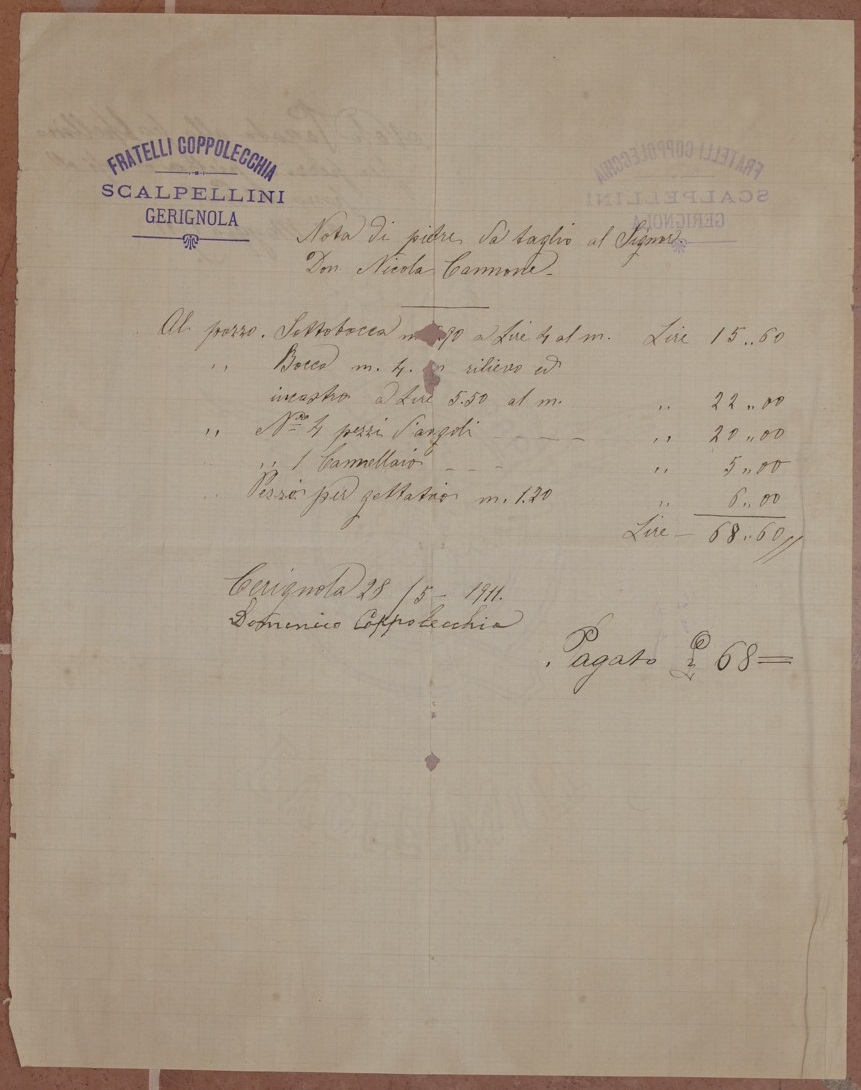 FRATELLI COPPOLECCHIA
SCALPELLINI
GERIGNOLA
Nota di pietre da taglio al Signor
Don Nicola Cannone.
Al pozzo. Sottobocca m. 90 a Lire 4 al m. Lire 15..60
,, Bocca m. 4. rilievo ed
incastro a Lire 5.50 al m. ,, 22..00
,, N.ro 4 pezzi d'angoli ,, 20..00
,, 1 Cannellaio ,, 5..00
Pezzo per gettatoio m. 1.20 ,, 6..00
Lire — 68..60//
Cerignola 28/5 - 1911.
Domenico Coppolecchia
Pagato £ 68=